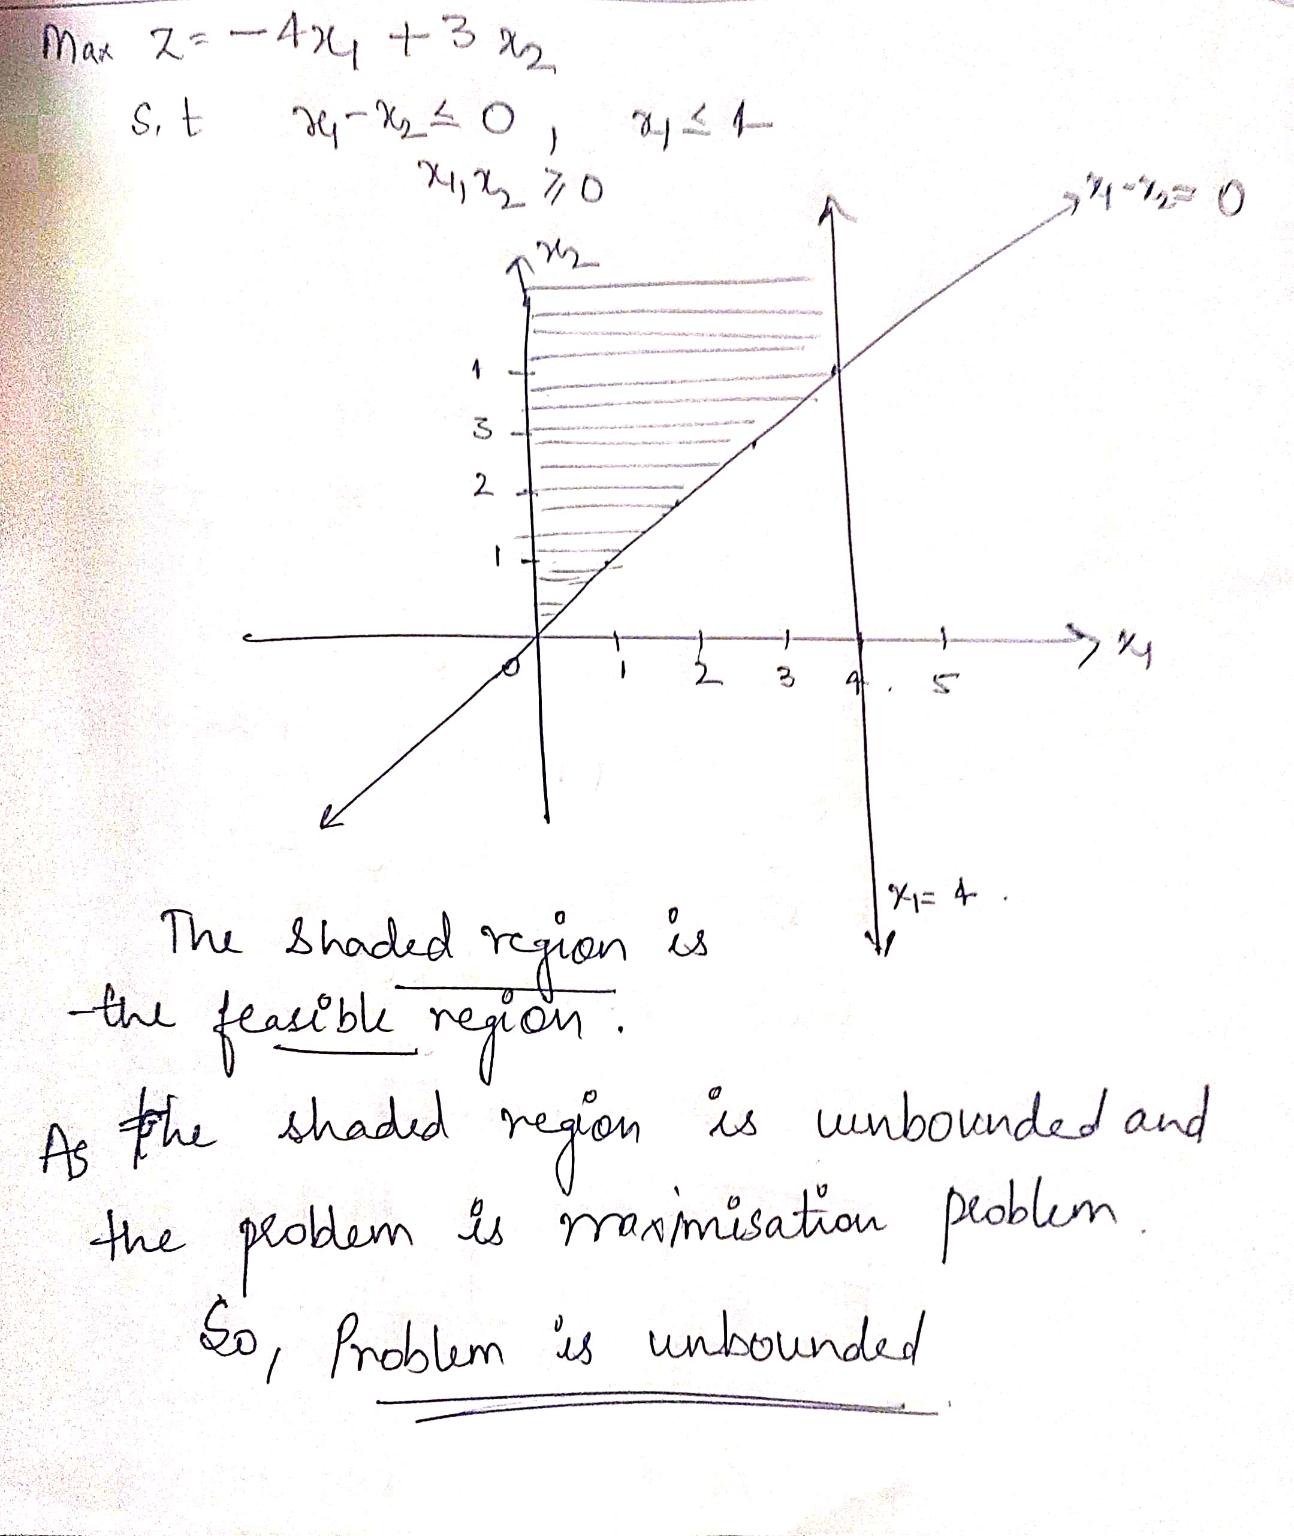 Max Z = -4x₁ + 3x₂
S.t x₁-x₂ ≤ 0, x₁ ≤ 4
x₁,x₂ ≥ 0
x₁-x₂ = 0
x₂
4
3
2
1
0 1 2 3 4 5 x₁
x₁ = 4
The shaded region is
the feasible region.
As the shaded region is unbounded and
the problem is maximisation problem.
So, Problem is unbounded